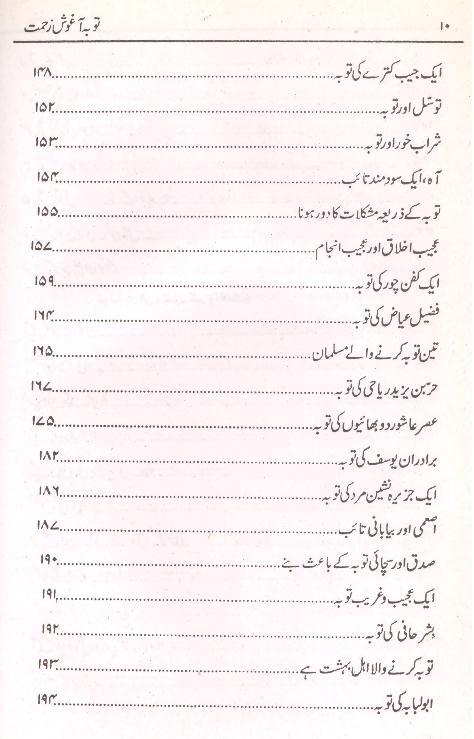 ۱۰ توبہ آغوش رحمت
ایک جیب کترے کی توبہ ۱۴۸
توسّل اور توبہ ۱۵۲
شراب خور اور توبہ ۱۵۳
آہ، ایک سودمند تائب ۱۵۴
توبہ کے ذریعہ مشکلات کا دور ہونا ۱۵۵
عجیب اخلاق اور عجیب انجام ۱۵۷
ایک کفن چور کی توبہ ۱۵۹
فضیل عیاض کی توبہ ۱۶۴
تین توبہ کرنے والے مسلمان ۱۶۵
حرّ بن یزید ریاحی کی توبہ ۱۶۷
عصر عاشور دو بھائیوں کی توبہ ۱۷۵
برادران یوسف کی توبہ ۱۸۲
ایک جزیرہ نشین مرد کی توبہ ۱۸۶
اصمعی اور بیابانی تائب ۱۸۷
صدق اور سچائی توبہ کے باعث بنے ۱۹۰
ایک عجیب و غریب توبہ ۱۹۱
بشر حافی کی توبہ ۱۹۲
توبہ کرنے والا اہل بہشت ہے ۱۹۳
ابولبابہ کی توبہ ۱۹۴